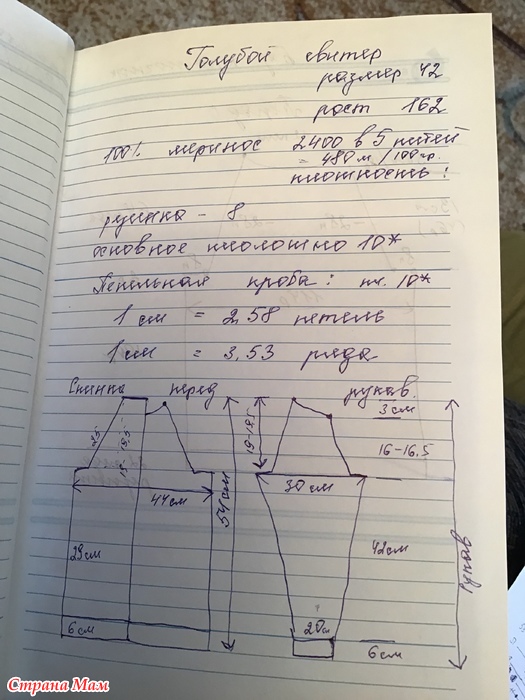 Голубой свитер
размер 42
рост 162
100% меринос 2400 в 5 нитей
= 480 м/100 гр.
плотность:
резинка - 8
основное полотно 10*
Петельная проба: пл. 10*
1 см = 2,58 петель
1 см = 3,53 ряда
Спинка перед рукав.
3 см
25
19-19,5
19-19,5
16-16,5
44 см
54 см
30 см
29 см
42 см
рукав
20 см
6 см
6 см
Страна Мам